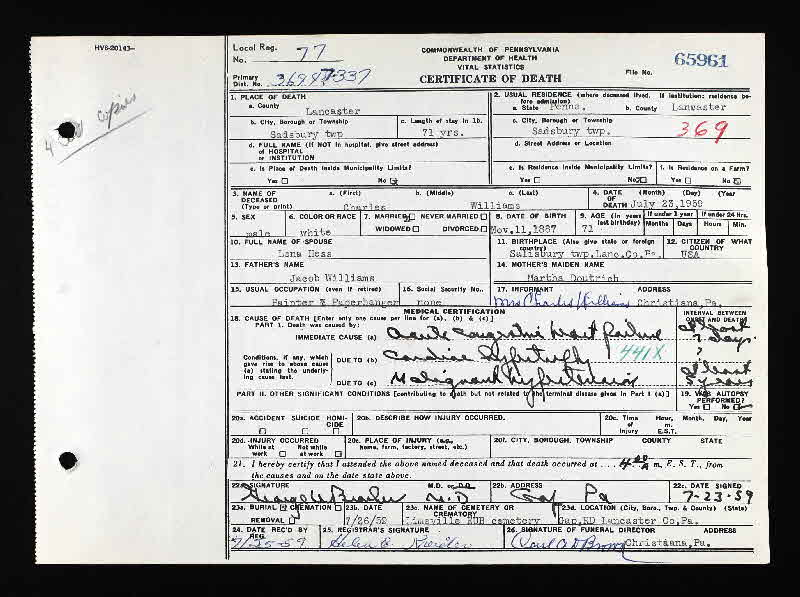 HVS-20143-
Local Reg. No. 77
COMMONWEALTH OF PENNSYLVANIA
DEPARTMENT OF HEALTH
VITAL STATISTICS
CERTIFICATE OF DEATH
File No. 65961
Primary Dist. No.
4 copies
1. PLACE OF DEATH
a. County
Lancaster
b. City, Borough or Township
Sadsbury twp
c. Length of stay in 1b.
71 yrs.
d. FULL NAME (If NOT in hospital, give street address) of HOSPITAL or INSTITUTION
e. Is Place of Death Inside Municipality Limits?
Yes No
2. USUAL RESIDENCE (where deceased lived. If institution: residence before admission)
a. State Penna. b. County Lancaster
c. City, Borough or Township
Sadsbury twp.
369
d. Street Address or Location
e. Is Residence Inside Municipality Limits?
Yes No
f. Is Residence on a Farm?
Yes No
3. NAME OF DECEASED (Type or print)
a. (First) b. (Middle) c. (Last)
Charles Williams
4. DATE OF DEATH (Month) (Day) (Year)
July 23,1959
5. SEX
male
6. COLOR OR RACE
white
7. MARRIED NEVER MARRIED
WIDOWED DIVORCED
8. DATE OF BIRTH
Nov.11,1887
9. AGE (in years last birthday)
71
If under 1 year Months Days
If under 24 Hrs. Hours Min.
10. FULL NAME OF SPOUSE
Lena Hess
11. BIRTHPLACE (Also give state or foreign country)
Salisbury twp.Lanc.Co.Pa.
12. CITIZEN OF WHAT COUNTRY
USA
13. FATHER'S NAME
Jacob Williams
14. MOTHER'S MAIDEN NAME
Martha Doutrich
15. USUAL OCCUPATION (even if retired)
Painter & Paperhanger
16. Social Security No.
none
17. INFORMANT ADDRESS
Mrs Charles Williams Christiana,Pa.
MEDICAL CERTIFICATION
18. CAUSE OF DEATH [Enter only one cause per line for (a), (b) & (c)]
PART 1. Death was caused by:
INTERVAL BETWEEN ONSET AND DEATH
IMMEDIATE CAUSE (a) Acute Congestive heart failure at least 2 days
Conditions, if any, which gave rise to above cause (a) stating the underlying cause last.
DUE TO (b) Cardiac Hypertrophy 441X ?
DUE TO (c) Malignant hypertension at least 5 years
PART II. OTHER SIGNIFICANT CONDITIONS [contributing to death but not related to the terminal disease given in Part 1 (a)]
19. WAS AUTOPSY PERFORMED?
Yes No
20a. ACCIDENT SUICIDE HOMICIDE
20b. DESCRIBE HOW INJURY OCCURRED.
20c. Time of Injury Hour, m. E.S.T. Month, Day, Year
20d. INJURY OCCURRED
While at work Not while at work
20e. PLACE OF INJURY (e.g., home, farm, factory, street, etc.)
20f. CITY, BOROUGH, TOWNSHIP COUNTY STATE
21. I hereby certify that I attended the above named deceased and that death occurred at .... m. E. S. T., from
the causes and on the date state above.
22a. SIGNATURE M.D. or D.O.
M.D
22b. ADDRESS
Gap Pa
22c. DATE SIGNED
7-23-59
23a. BURIAL CREMATION REMOVAL
23b. DATE
7/26/59
23c. NAME OF CEMETERY OR CREMATORY
Limeville EUB cemetery
23d. LOCATION (City, Boro., Twp. & County) (State)
Gap,RD Lancaster Co,Pa.
24. DATE REC'D BY REG.
7/25-59
25. REGISTRAR'S SIGNATURE
Helen
26. SIGNATURE OF FUNERAL DIRECTOR ADDRESS
Paul Brown Christiana,Pa.